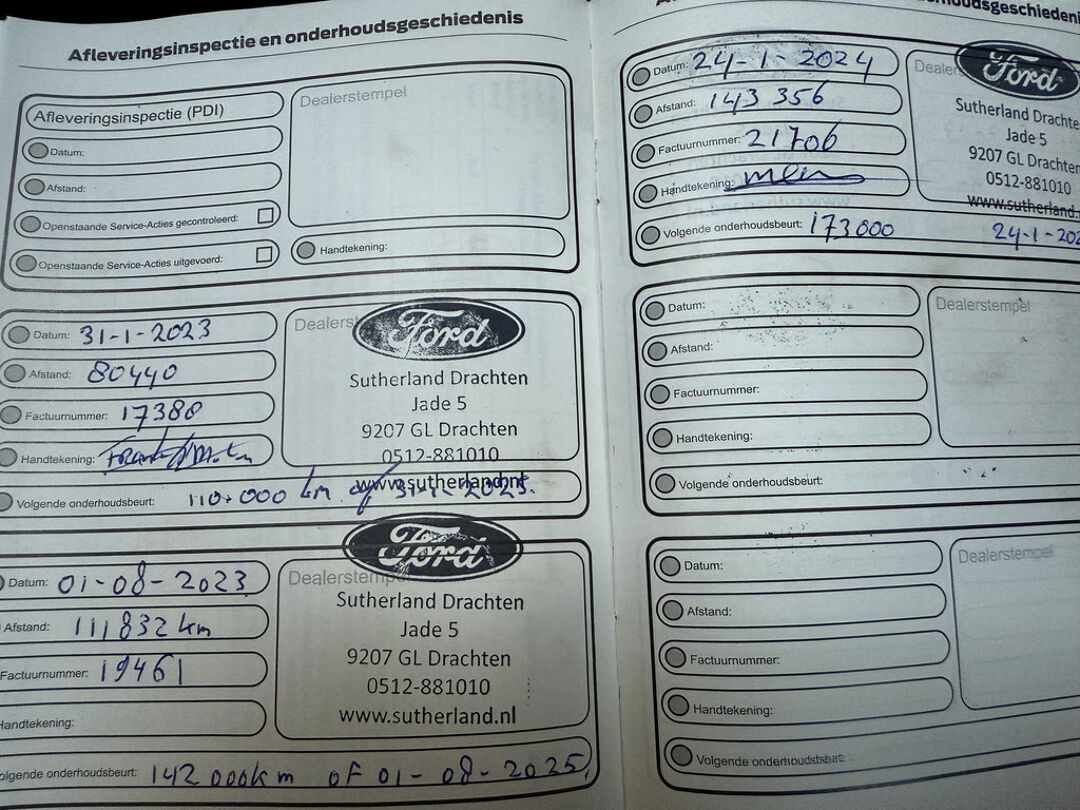 Afleveringsinspectie en onderhoudsgeschiedenis
Afleveringsinspectie (PDI)
Datum:
Afstand:
Openstaande Service-Acties gecontroleerd:
Openstaande Service-Acties uitgevoerd:
Dealerstempel
Handtekening:
Datum: 31-1-2023
Afstand: 80440
Factuurnummer: 17380
Handtekening:
Volgende onderhoudsbeurt: 110.000 km of 31-1-2025.
Dealerst
Ford
Sutherland Drachten
Jade 5
9207 GL Drachten
0512-881010
www.sutherland.nl
Datum: 01-08-2023
Afstand: 111832 km
Factuurnummer: 19461
Handtekening:
olgende onderhoudsbeurt: 142 000km of 01-08-2025.
Dealerstempel
Ford
Sutherland Drachten
Jade 5
9207 GL Drachten
0512-881010
www.sutherland.nl
houdsgeschiedeni
Datum: 24-1-2024
Afstand: 143 356
Factuurnummer: 21706
Handtekening:
Volgende onderhoudsbeurt: 173000 24-1-202
Dealer
Ford
Sutherland Drachte
Jade 5
9207 GL Drachten
0512-881010
www.sutherland.
Datum:
Afstand:
Factuurnummer:
Handtekening:
Volgende onderhoudsbeurt:
Dealerstempel
Datum:
Afstand:
Factuurnummer:
Handtekening:
Volgende onderhoudsbeurt:
Dealerstempel